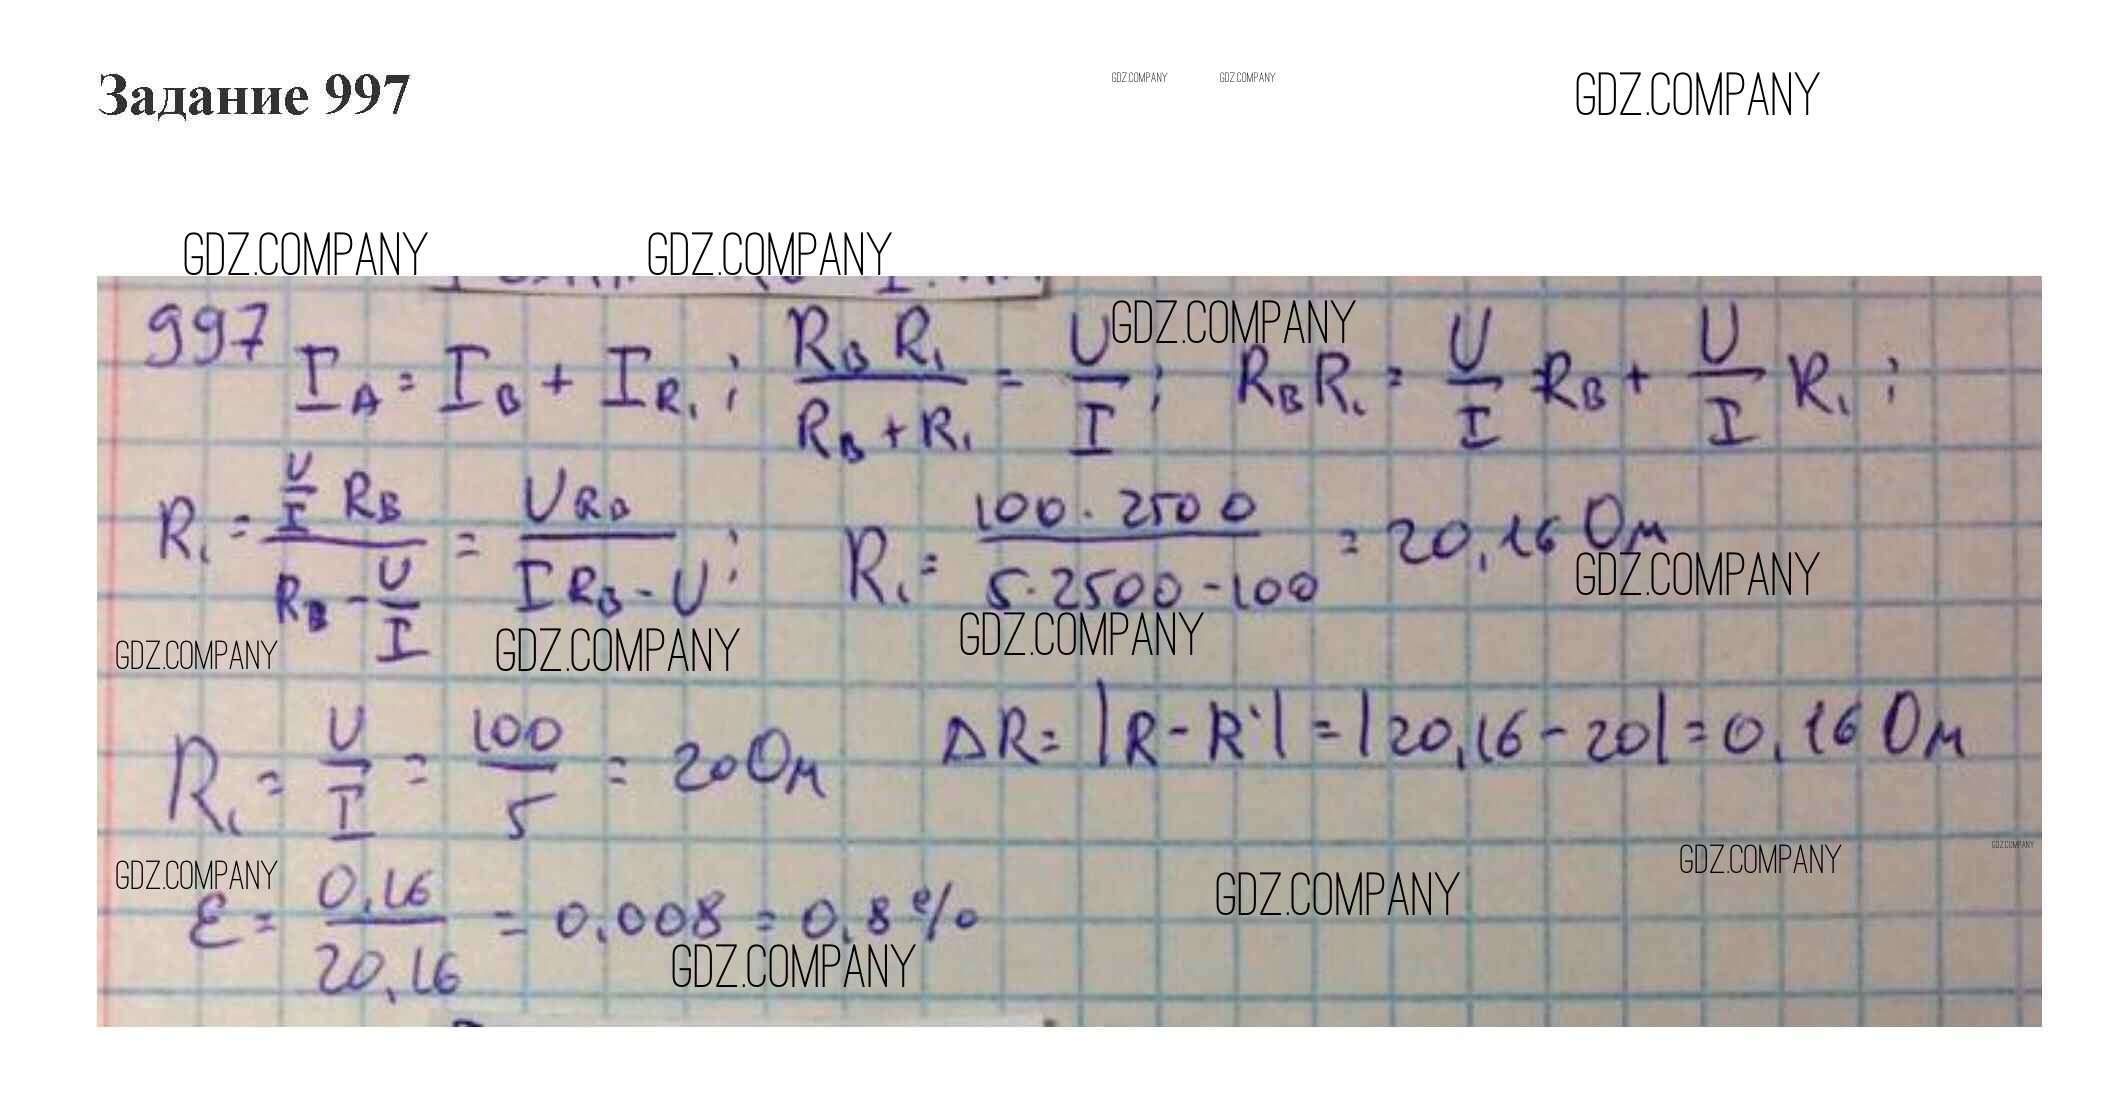 Задание 997
GDZ.COMPANY GDZ.COMPANY GDZ.COMPANY
GDZ.COMPANY GDZ.COMPANY
GDZ.COMPANY
997 I_A = I_B + I_R₁ ; R_B R₁ / (R_B + R₁) = U/I ; R_B R₁ = U/I R_B + U/I R₁ ;
R₁ = (U/I R_B) / (R_B - U/I) = U R_B / (I R_B - U) ; R₁ = 100 · 2500 / (5 · 2500 - 100) = 20,16 Ом
GDZ.COMPANY
GDZ.COMPANY GDZ.COMPANY GDZ.COMPANY
R₁ = U/I = 100/5 = 20 Ом ΔR = |R - R'| = |20,16 - 20| = 0,16 Ом
GDZ.COMPANY GDZ.COMPANY GDZ.COMPANY GDZ.COMPANY
ε = 0,16 / 20,16 = 0,008 = 0,8 %
GDZ.COMPANY